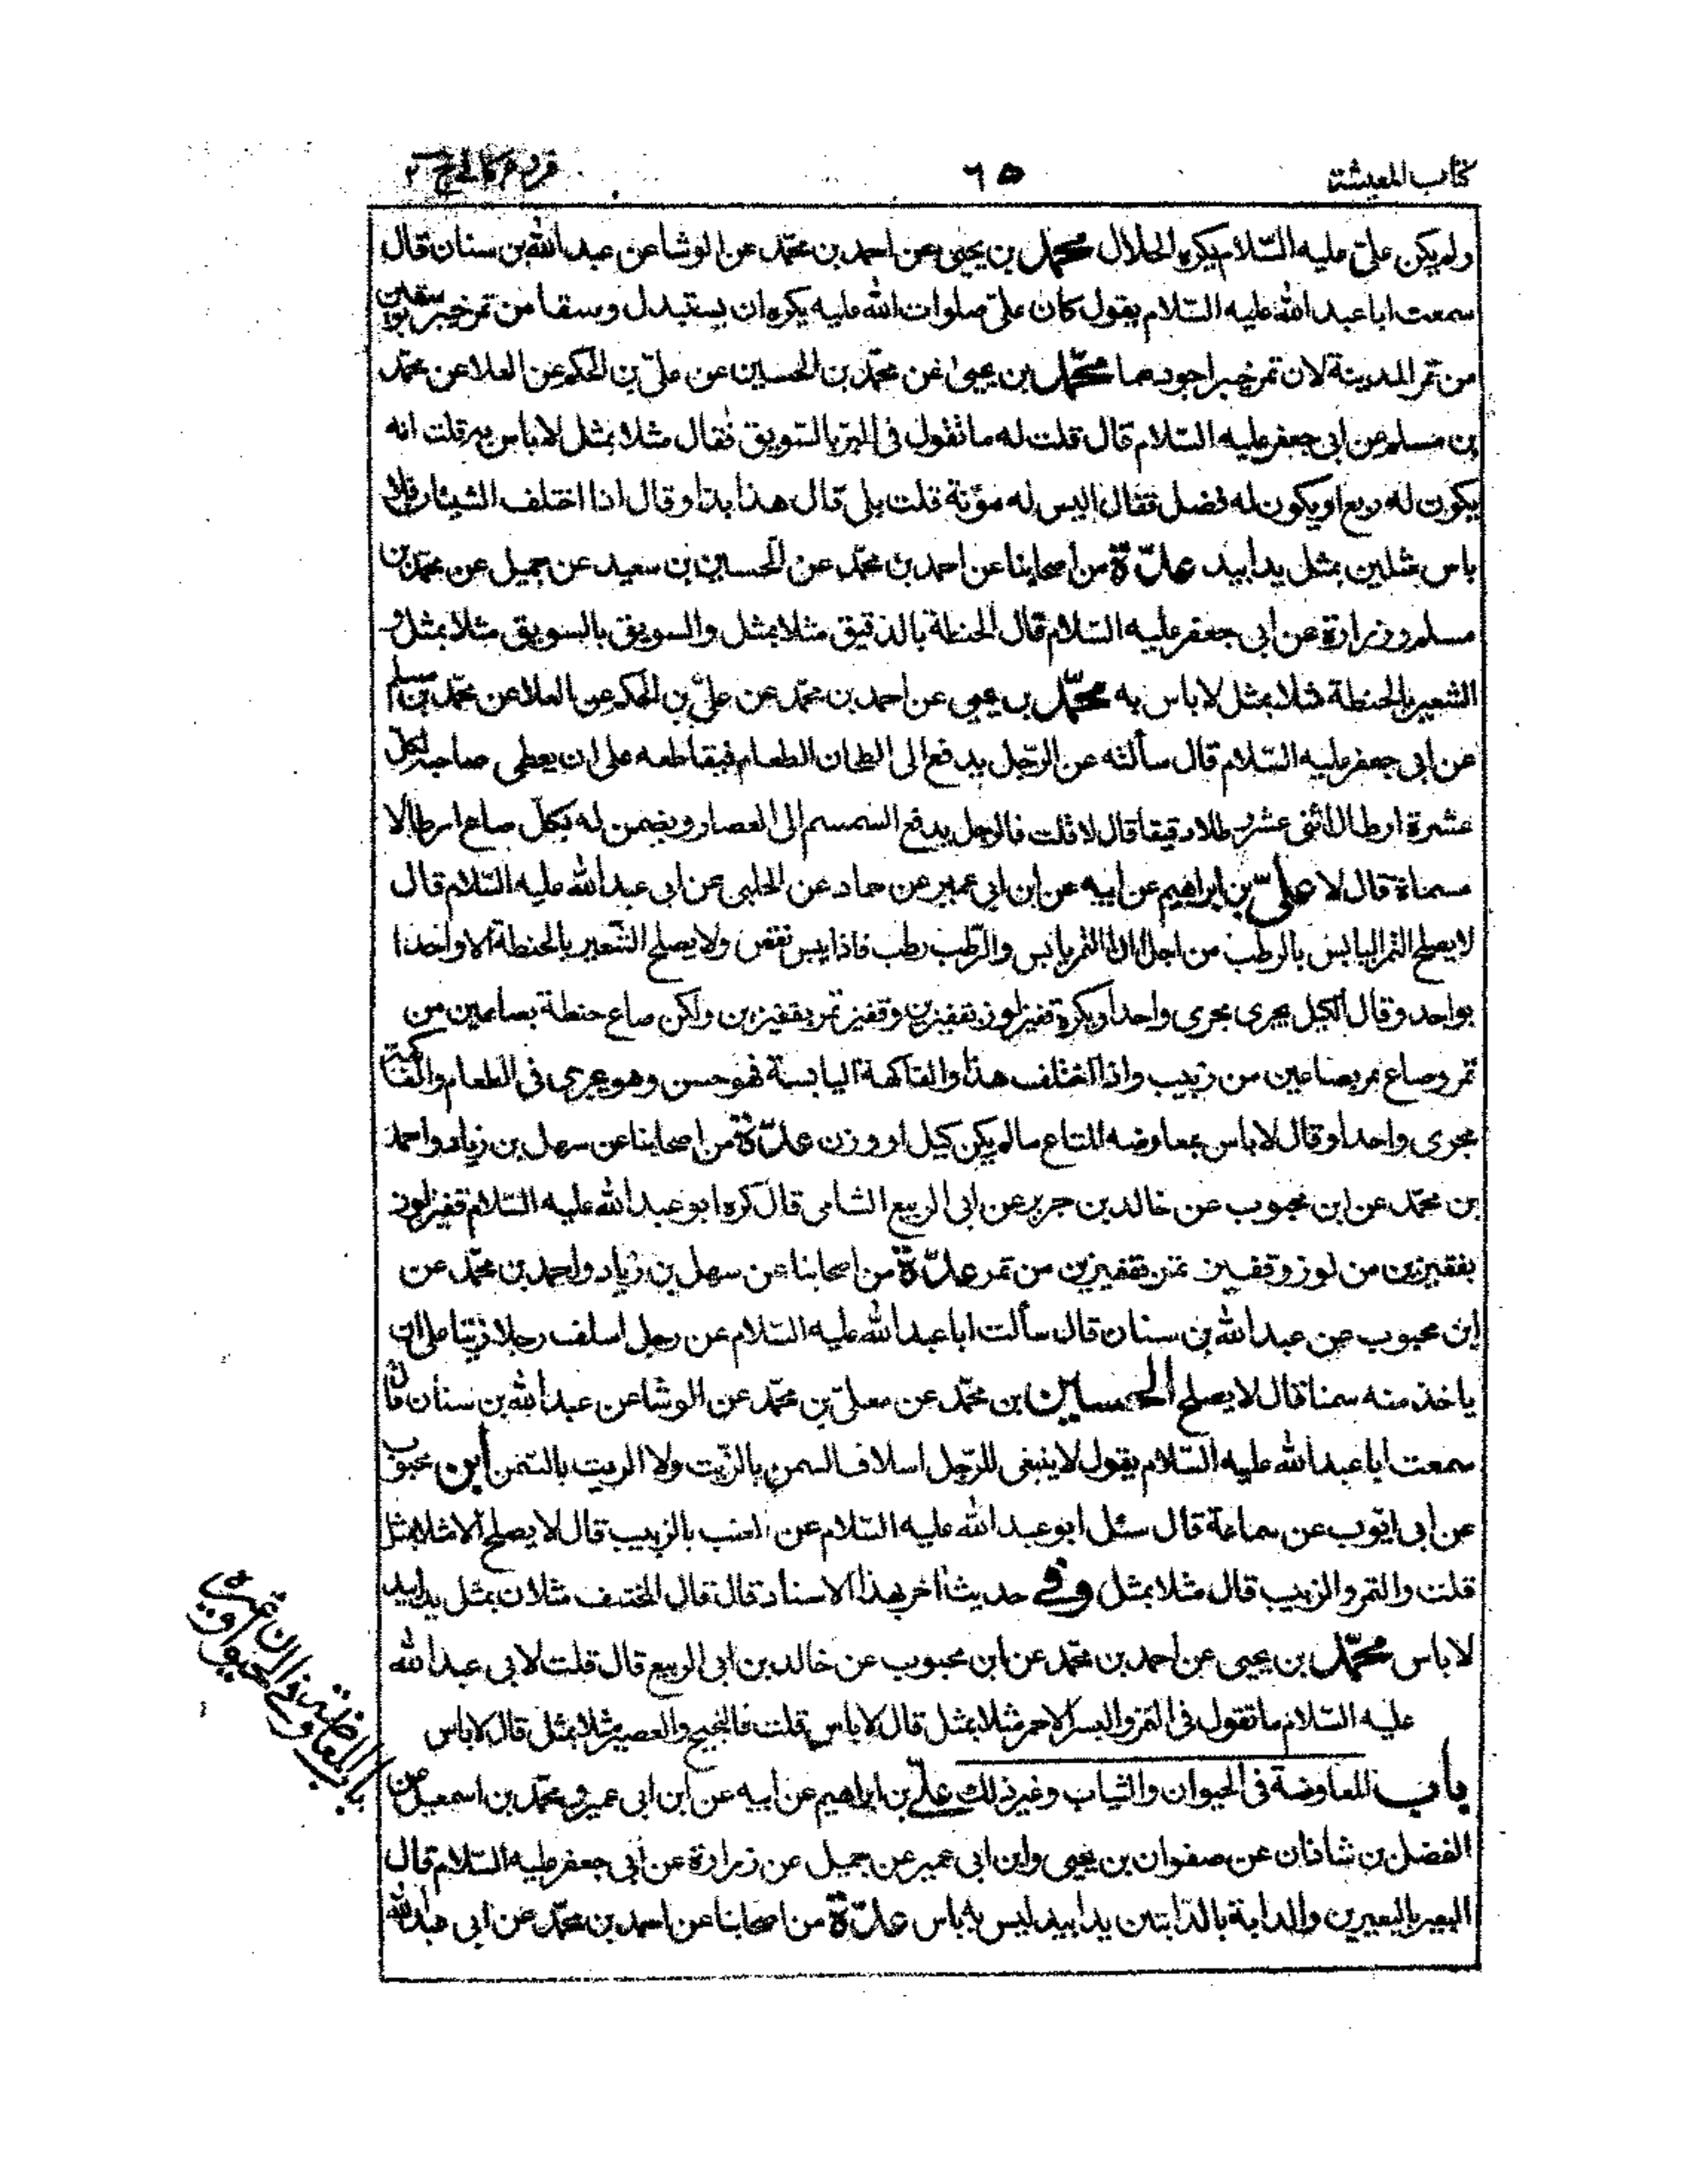 كتاب المعيشة
٦٥
فروع كافى ج ٢
ولم يكن علىّ عليه السّلام يكره الحلال محمّد بن يحيى عن احمد بن محمّد عن الوشا عن عبد الله بن سنان قال
سمعت ابا عبد الله عليه السّلام يقول كان علىّ صلوات الله عليه يكره ان يستبدل وسقا من تمر خيبر بوسقين
من تمر المدينة لان تمر خيبر اجودهما محمّد بن يحيى عن محمّد بن الحسين عن علىّ بن الحكم عن العلا عن محمّد
بن مسلم عن ابى جعفر عليه السّلام قال قلت له ما تقول فى البرّ بالسّويق فقال مثلا بمثل لا باس به قلت انه
يكون له ريع او يكون له فضل فقال اليس له مؤنة قلت بلى قال هذا بذا وقال اذا اختلف الشيئان فلا
باس بمثلين بمثل يدا بيد عدّة من اصحابنا عن احمد بن محمّد عن الحسين بن سعيد عن جميل عن محمّد بن
مسلم وزرارة عن ابى جعفر عليه السّلام قال الحنطة بالدّقيق مثلا بمثل والسويق بالسويق مثلا بمثل و
الشعير بالحنطة مثلا بمثل لا باس به محمّد بن يحيى عن احمد بن محمّد عن علىّ بن الحكم عن العلا عن محمّد بن مسلم
عن ابى جعفر عليه السّلام قال سألته عن الرّجل يدفع الى الطحان الطعام فيقاطعه على ان يعطى صاحبه لكلّ
عشرة ارطال اثنى عشر رطلا دقيقا قال لا قلت فالرجل يدفع السمسم الى العصار ويضمن له بكلّ صاع ارطالا
مسماة قال لا علىّ بن ابراهيم عن ابيه عن ابن ابى عمير عن حماد عن الحلبى عن ابى عبد الله عليه السّلام قال
لا يصلح التمر اليابس بالرطب من اجل ان التمر يابس والرّطب رطب فاذا يبس نقص ولا يصلح الشّعير بالحنطة الا واحدا
بواحد وقال الكيل يجرى مجرى واحدا ويكره قفيز لوز بقفيزين وقفيز تمر بقفيزين ولكن صاع حنطة بصاعين من
تمر وصاع تمر بصاعين من زبيب واذا اختلف هذا والفاكهة اليابسة فهو حسن وهو يجرى فى الطعام والفاكهة
مجرى واحدا وقال لا باس بمعاوضه المتاع ما لم يكن كيل او وزن عدّة من اصحابنا عن سهل بن زياد واحمد
بن محمّد عن ابن محبوب عن خالد بن جرير عن ابى الربيع الشامى قال كره ابو عبد الله عليه السّلام قفيز لوز
بقفيزين من لوز وقفيز تمر بقفيزين من تمر عدّة من اصحابنا عن سهل بن زياد واحمد بن محمّد عن
ابن محبوب عن عبد الله بن سنان قال سألت ابا عبد الله عليه السّلام عن رجل اسلف رجلا زيتا على ان
ياخذ منه سمنا قال لا يصلح الحسين بن محمّد عن معلىّ بن محمّد عن الوشا عن عبد الله بن سنان قال
سمعت ابا عبد الله عليه السّلام يقول لا ينبغى للرّجل اسلاف السمن بالزّيت ولا الزيت بالسّمن ابن محبوب
عن ابى ايّوب عن سماعة قال سئل ابو عبد الله عليه السّلام عن العنب بالزبيب قال لا يصلح الا مثلا بمثل
قلت والتمر والزبيب قال مثلا بمثل وفى حديث اخر بهذا الاسناد قال قال المختلف مثلان بمثل يدا بيد
لا باس محمّد بن يحيى عن احمد بن محمّد عن ابن محبوب عن خالد بن ابى الربيع قال قلت لابى عبد الله
عليه السّلام ما تقول فى التمر والبسر الاحمر مثلا بمثل قال لا باس قلت فالبختج والعصير مثلا بمثل قال لا باس
باب المعاوضة فى الحيوان والثياب وغير ذلك علىّ بن ابراهيم عن ابيه عن ابن ابى عمير ومحمّد بن اسمعيل عن
الفضل بن شاذان عن صفوان بن يحيى وابن ابى عمير عن جميل عن زرارة عن ابى جعفر عليه السّلام قال
البعير بالبعيرين والدابة بالدّابتين يدا بيد ليس به باس عدّة من اصحابنا عن احمد بن محمّد عن ابى عبد الله
باب المعاوضة